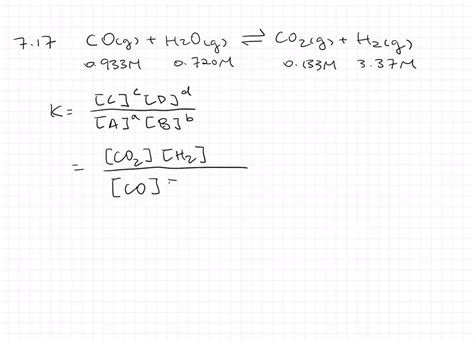 7.17 CO(g) + H2O(g) ⇌ CO2(g) + H2(g)
0.933M 0.720M 0.133M 3.37M
K = [C]^c [D]^d / [A]^a [B]^b
= [CO2] [H2] / [CO]